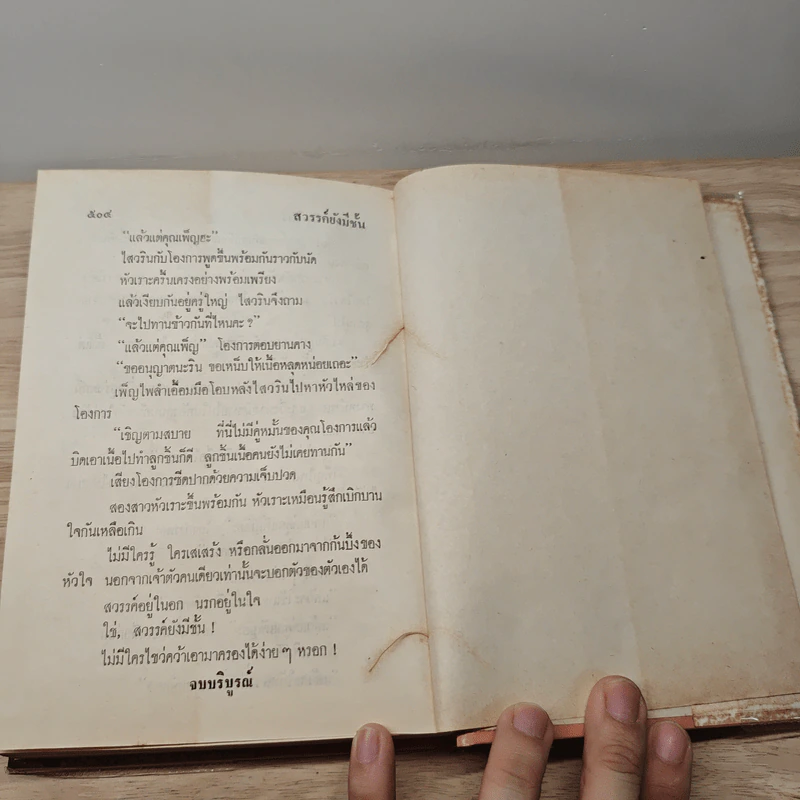 ๕๐๔ สวรรค์ยังมีชั้น
“แล้วแต่คุณเพ็ญฮะ”
ไสวรินกับโองการพูดขึ้นพร้อมกันราวกับนัด
หัวเราะครื้นเครงอย่างพร้อมเพรียง
แล้วเงียบกันอยู่ครู่ใหญ่ ไสวรินจึงถาม
“จะไปทานข้าวกันที่ไหนคะ ?”
“แล้วแต่คุณเพ็ญ” โองการตอบยานคาง
“ขออนุญาตนะริน ขอเหน็บให้เนื้อหลุดหน่อยเถอะ”
เพ็ญไพลำเอื้อมมือโอบหลังไสวรินไปหาหัวไหล่ของ
โองการ
“เชิญตามสบาย ที่นี่ไม่มีคู่หมั้นของคุณโองการแล้ว
บิดเอาเนื้อไปทำลูกชิ้นก็ดี ลูกชิ้นเนื้อคนยังไม่เคยทานกัน”
เสียงโองการซี๊ดปากด้วยความเจ็บปวด
สองสาวหัวเราะขึ้นพร้อมกัน หัวเราะเหมือนรู้สึกเบิกบาน
ใจกันเหลือเกิน
ไม่มีใครรู้ ใครเสแสร้ง หรือกลั่นออกมาจากก้นบึ้งของ
หัวใจ นอกจากเจ้าตัวคนเดียวเท่านั้นจะบอกตัวของตัวเองได้
สวรรค์อยู่ในอก นรกอยู่ในใจ
ใช่, สวรรค์ยังมีชั้น !
ไม่มีใครไขว่คว้าเอามาครองได้ง่าย ๆ หรอก !
จบบริบูรณ์